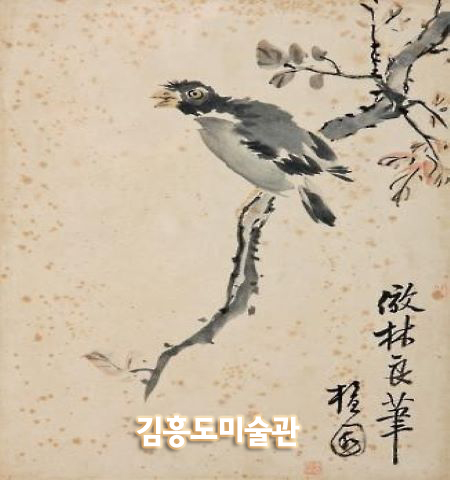 倣林良筆
檀園
김홍도미술관